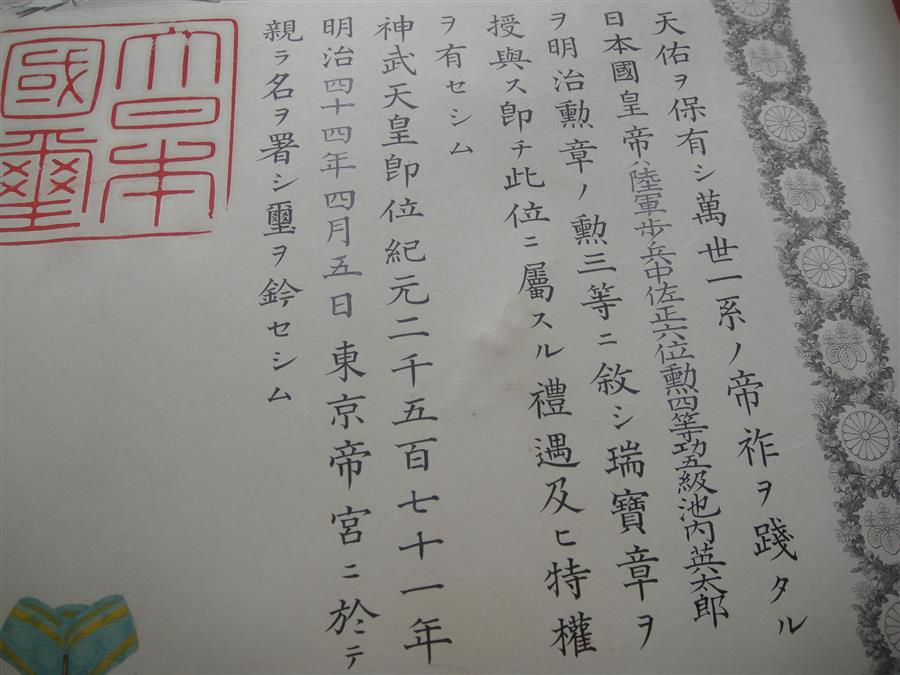 天佑ヲ保有シ萬世一系ノ帝祚ヲ踐タル
日本國皇帝ハ陸軍歩兵中佐正六位勲四等功五級池内英太郎
ヲ明治勲章ノ勲三等ニ敘シ瑞寶章ヲ
授與ス即チ此位ニ屬スル禮遇及ヒ特權
ヲ有セシム
神武天皇即位紀元二千五百七十一年
明治四十四年四月五日東京帝宮ニ於テ
親ラ名ヲ署シ璽ヲ鈐セシム
大日本
國璽